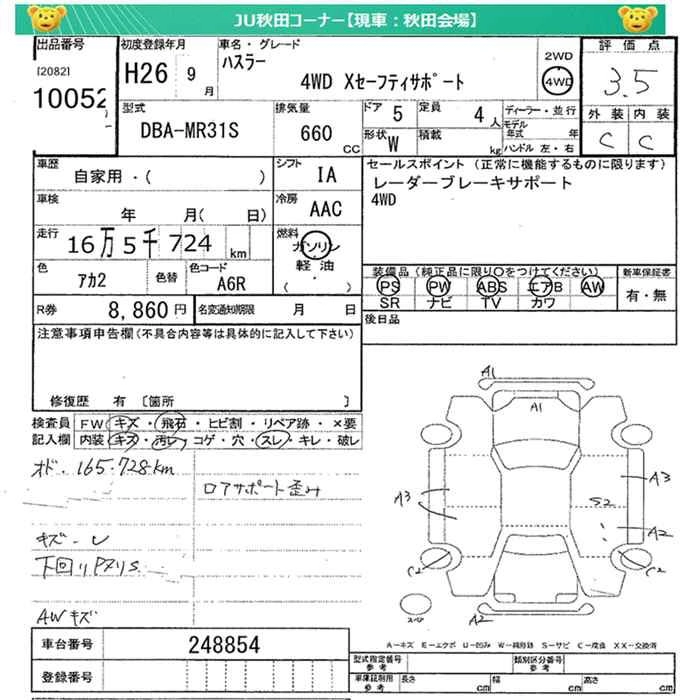 JU秋田コーナー【現車：秋田会場】
出品番号
[2082]
10052
初度登録年月
H26 9月
車名・グレード
ハスラー
4WD Xセーフティサポート
2WD
4WD
評価点
3.5
外装 内装
C C
型式
DBA-MR31S
排気量
660 CC
ドア 5
定員 4 人
形状 W
積載 kg
ディーラー・並行
モデル年式 年
ハンドル 左・右
車歴
自家用・( )
シフト
IA
車検
年 月( 日)
冷房
AAC
走行
16万5千724 km
燃料
ガソリン
軽油・
( )
色
アカ2
色替
色コード
A6R
R券 8,860円
名変通知期限 月 日
セールスポイント (正常に機能するものに限ります)
レーダーブレーキサポート
4WD
装備品(純正品に限り〇をつけてください)
新車保証書
PS PW ABS エアB AW
SR ナビ TV カワ
有・無
後日品
注意事項申告欄(不具合内容等は具体的に記入して下さい)
修復歴 有 〔箇所 〕
検査員記入欄
FW キズ・飛石・ヒビ割・リペア跡・×要
内装 キズ・汚レ・コゲ・穴・スレ・キレ・破レ
オド・165.728km
ロアサポート歪み
キズ・レ
下回り
AWキズ
A1
A1
A3
A3
S2
A2
C2
C2
A2
スペア
車台番号 248854
登録番号
A－キズ E－エクボ U－凹み W－補修跡 S－サビ C－腐食 XX－交換済
型式指定番号 参考
類別区分番号 参考
車庫証明用 参考
長さ cm 幅 cm 高さ cm